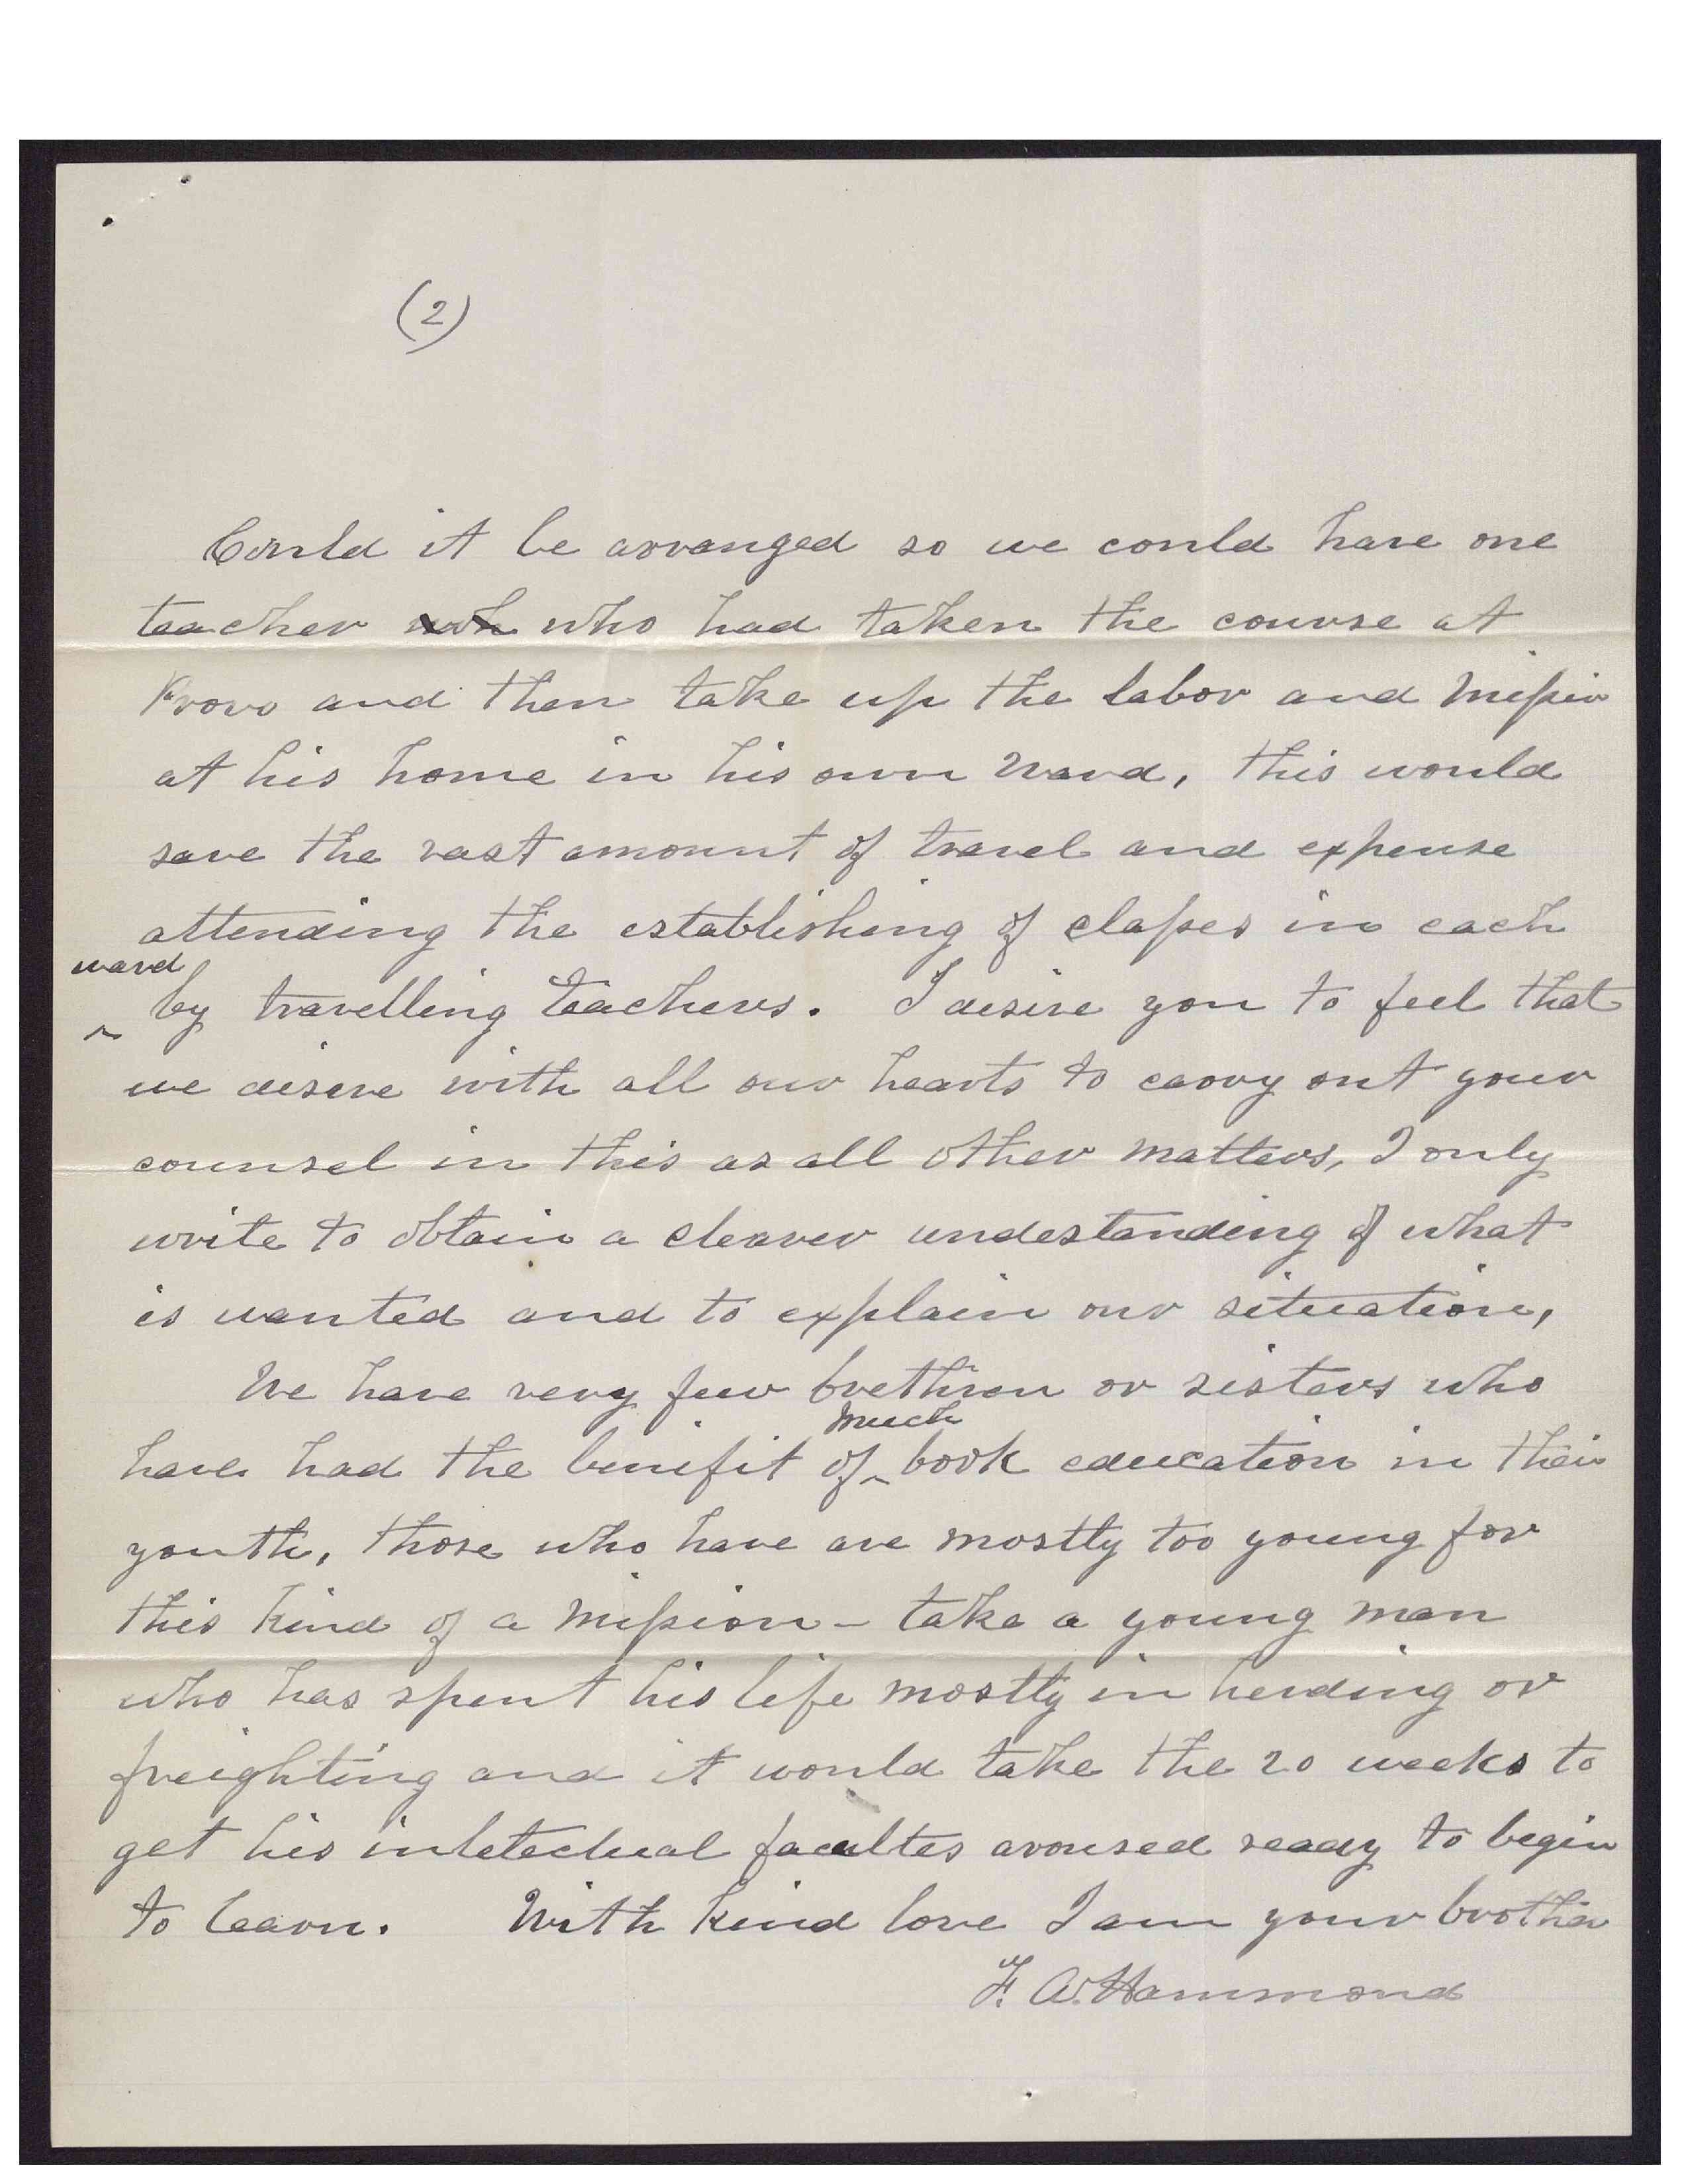 (2)
Could it be arranged so we could have one
teacher who had taken the course at
Provo and then take up the labor and Missin
at his home in his own Ward, this would
save the vast amount of travel and expense
attending the establishing of classes in each
ward
by travelling teachers. I desire you to feel that
we desire with all our hearts to carry out your
counsel in this as all other matters, I only
write to obtain a clearer undestanding of what
is wanted and to explain our situation,
We have very few brethren or sisters who
much
have had the benifit of ^ book education in their
youth, those who have are mostly too young for
this kind of a Mission - take a young man
who has spent his life mostly in herding or
freighting and it would take the 20 weeks to
get his intetectual facultes aroused ready to begin
to learn. With kind love I am your brother
F. A. Hammond